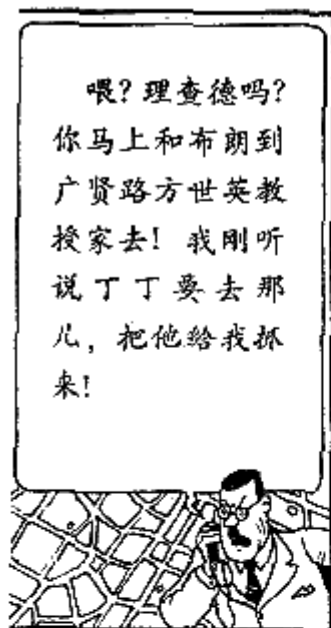 喂？理查德吗？
你马上和布朗到
广贤路方世英教
授家去！我刚听
说丁丁要去那
儿，把他给我抓
来！